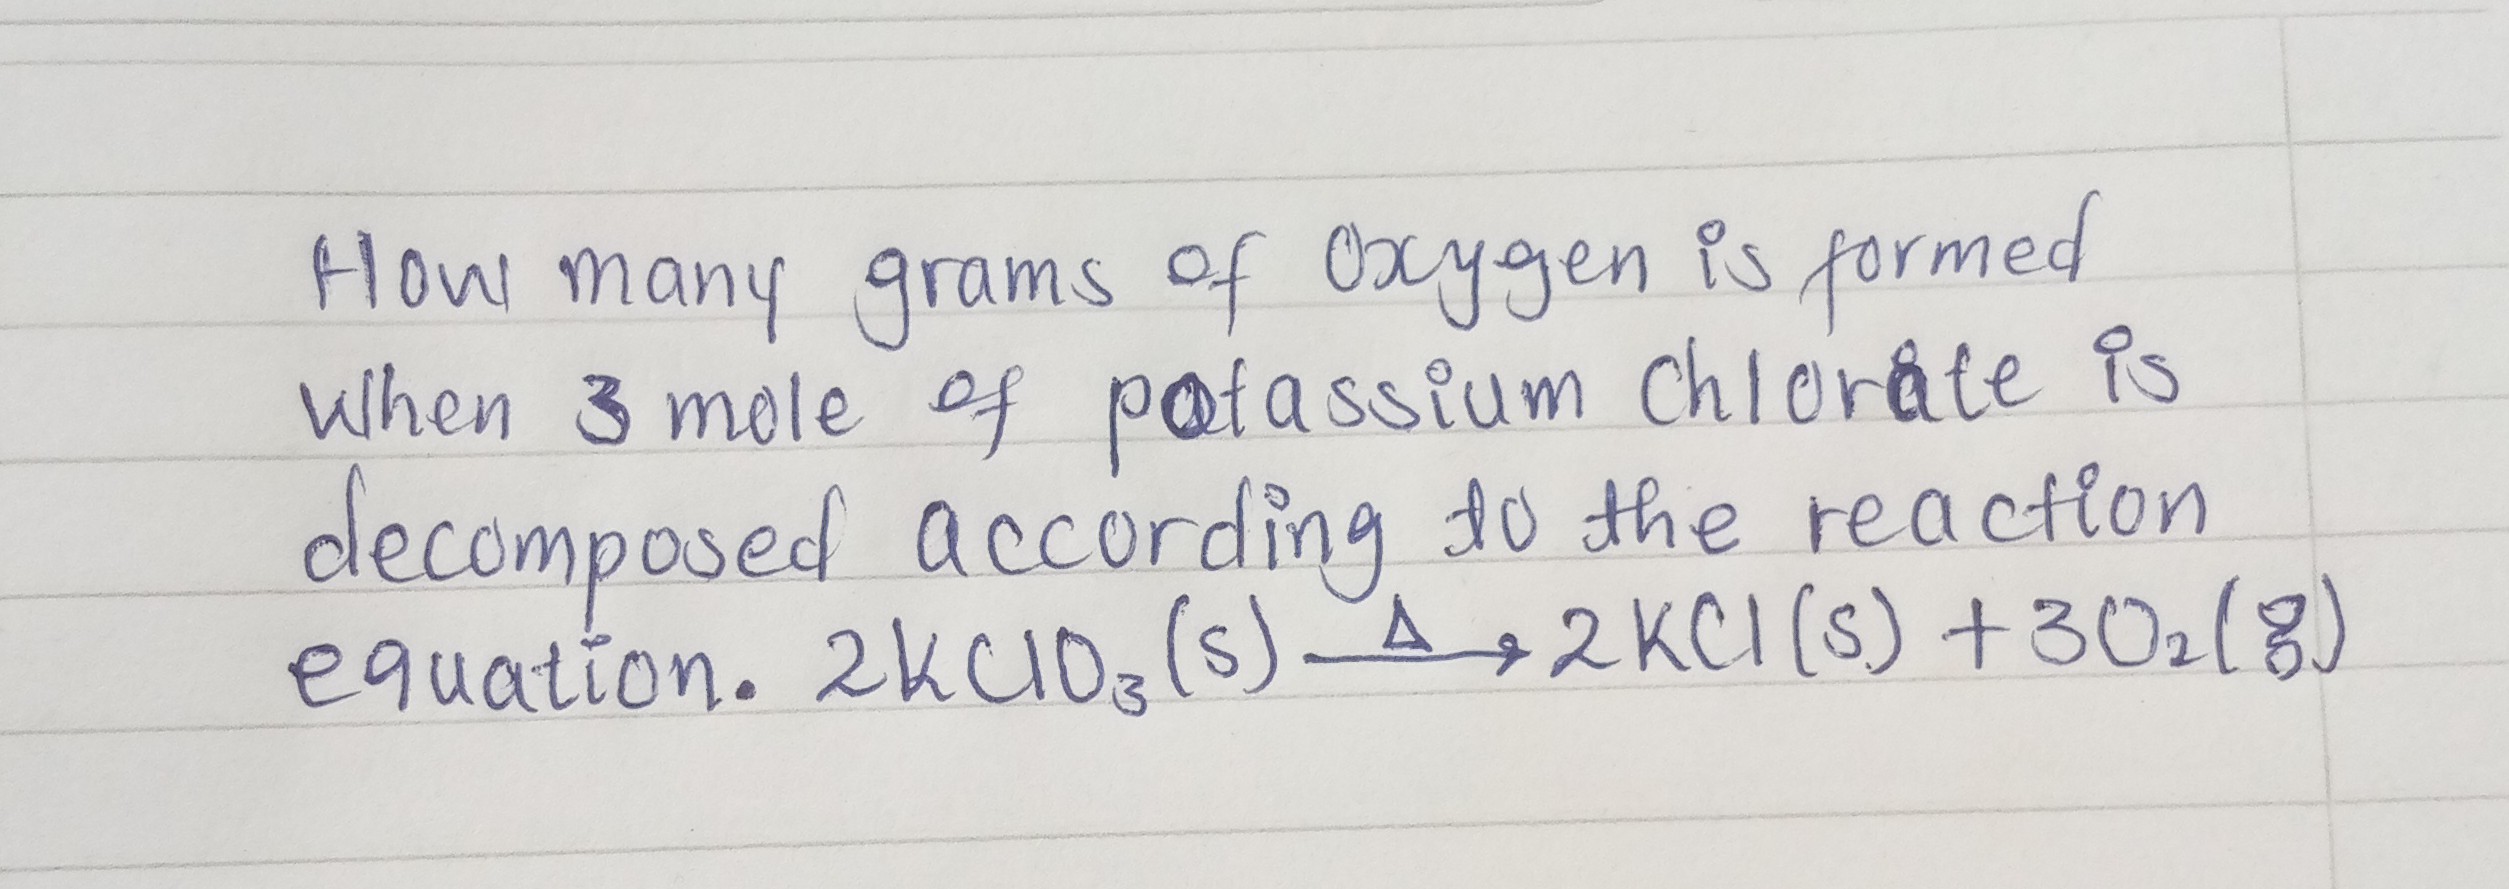 How many grams of Oxygen is formed
when 3 mole of potassium chlorate is
decomposed according to the reaction
equation. 2KClO₃(s) —Δ→ 2KCl(s) + 3O₂(g)